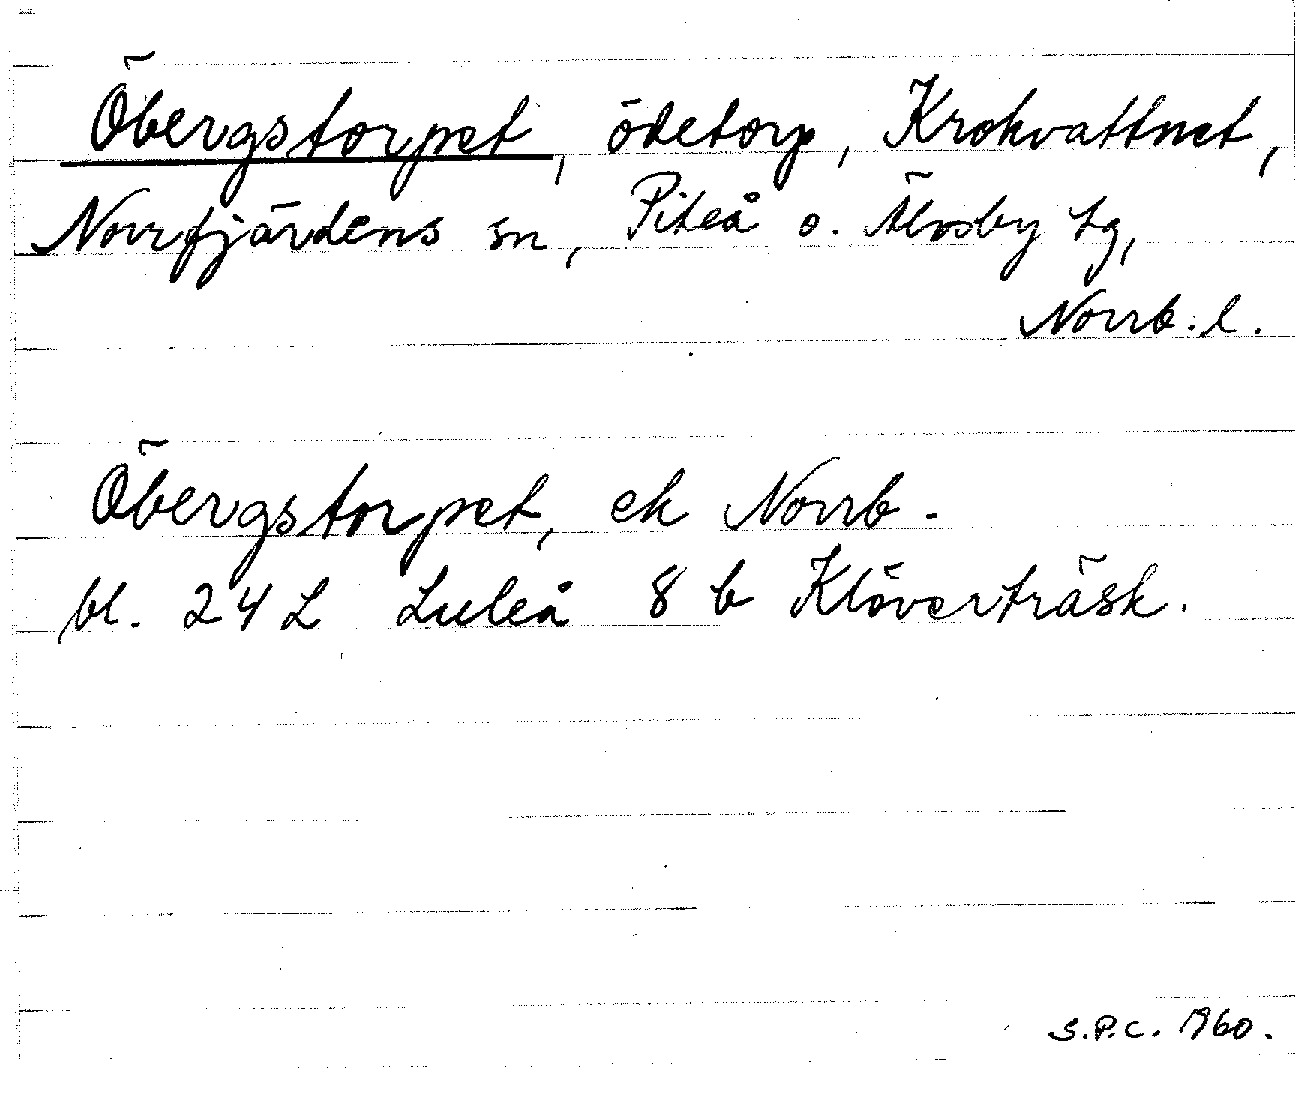 Öbergstorpet, ödetorp, Krokvattnet,
Norrfjärdens sn, Piteå o. Älvsby tg,
Norrb. l.
Öbergstorpet, ek Norrb.
bl. 24 L Luleå 8 b Klöverträsk.
S.P.C. 1960.